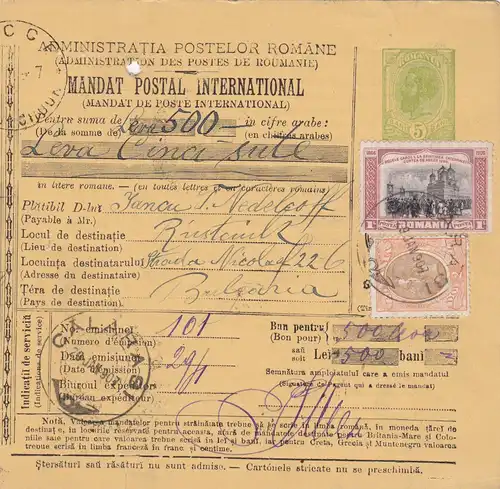 ADMINISTRAȚIA POSTELOR ROMÂNE
(ADMINISTRATION DES POSTES DE ROUMANIE)
MANDAT POSTAL INTERNAȚIONAL
(MANDAT DE POSTE INTERNATIONAL)
Pentru suma de Leva 500 în cifre arabe:
(De la somme de) (en chiffres arabes)
Leva Cinci sute
în litere romane. — (en toutes lettres et en caractères romains)
Plătibil D-lui Iancu I. Nedelcoff
(Payable à Mr.)
Locul de destinație Rustciuk
(Lieu de destination)
Locuința destinatarului Strada Nicolae 226
(Adresse du destinataire)
Țéra de destinație Bulgaria
(Pays de destination)
Indicații de serviciŭ
(Indications de service)
No. emisiuneĭ 101
(Numéro d'émission)
Data emisiuneĭ 29/1
(Date d'émission)
Biuroul expeditor
(Bureau expéditeur)
Bun pentru 500
(Bon pour)
saŭ
soit
Lei 500 bani
Semnătura amploiatului care a emis mandatul
(Signature de l'agent qui a dressé le mandat)
CALARASI
5
ROMANIA
1L 1L
Notă, Valoarea mandatelor pentru străinătate trebue să fie scrise în limba română, în moneda țărei de
destinație, în locurile reservate pentru aceasta, afară de mandatele destinate pentru Britania-Mare și Colo-
niile sale pentru care valoarea trebue scrisă în lei și bani, iar pentru Creta, Grecia și Muntenegru valoarea
trebue scrisă în limba franceză în franci și centime.
Ștersături saŭ răsături nu sunt admise. — Cartónele stricate nu se preschimbă.